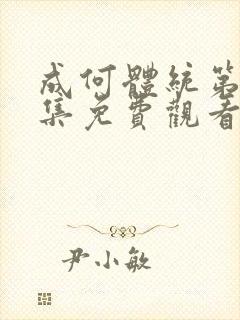 成何體統第
集免費觀看
尹小敏